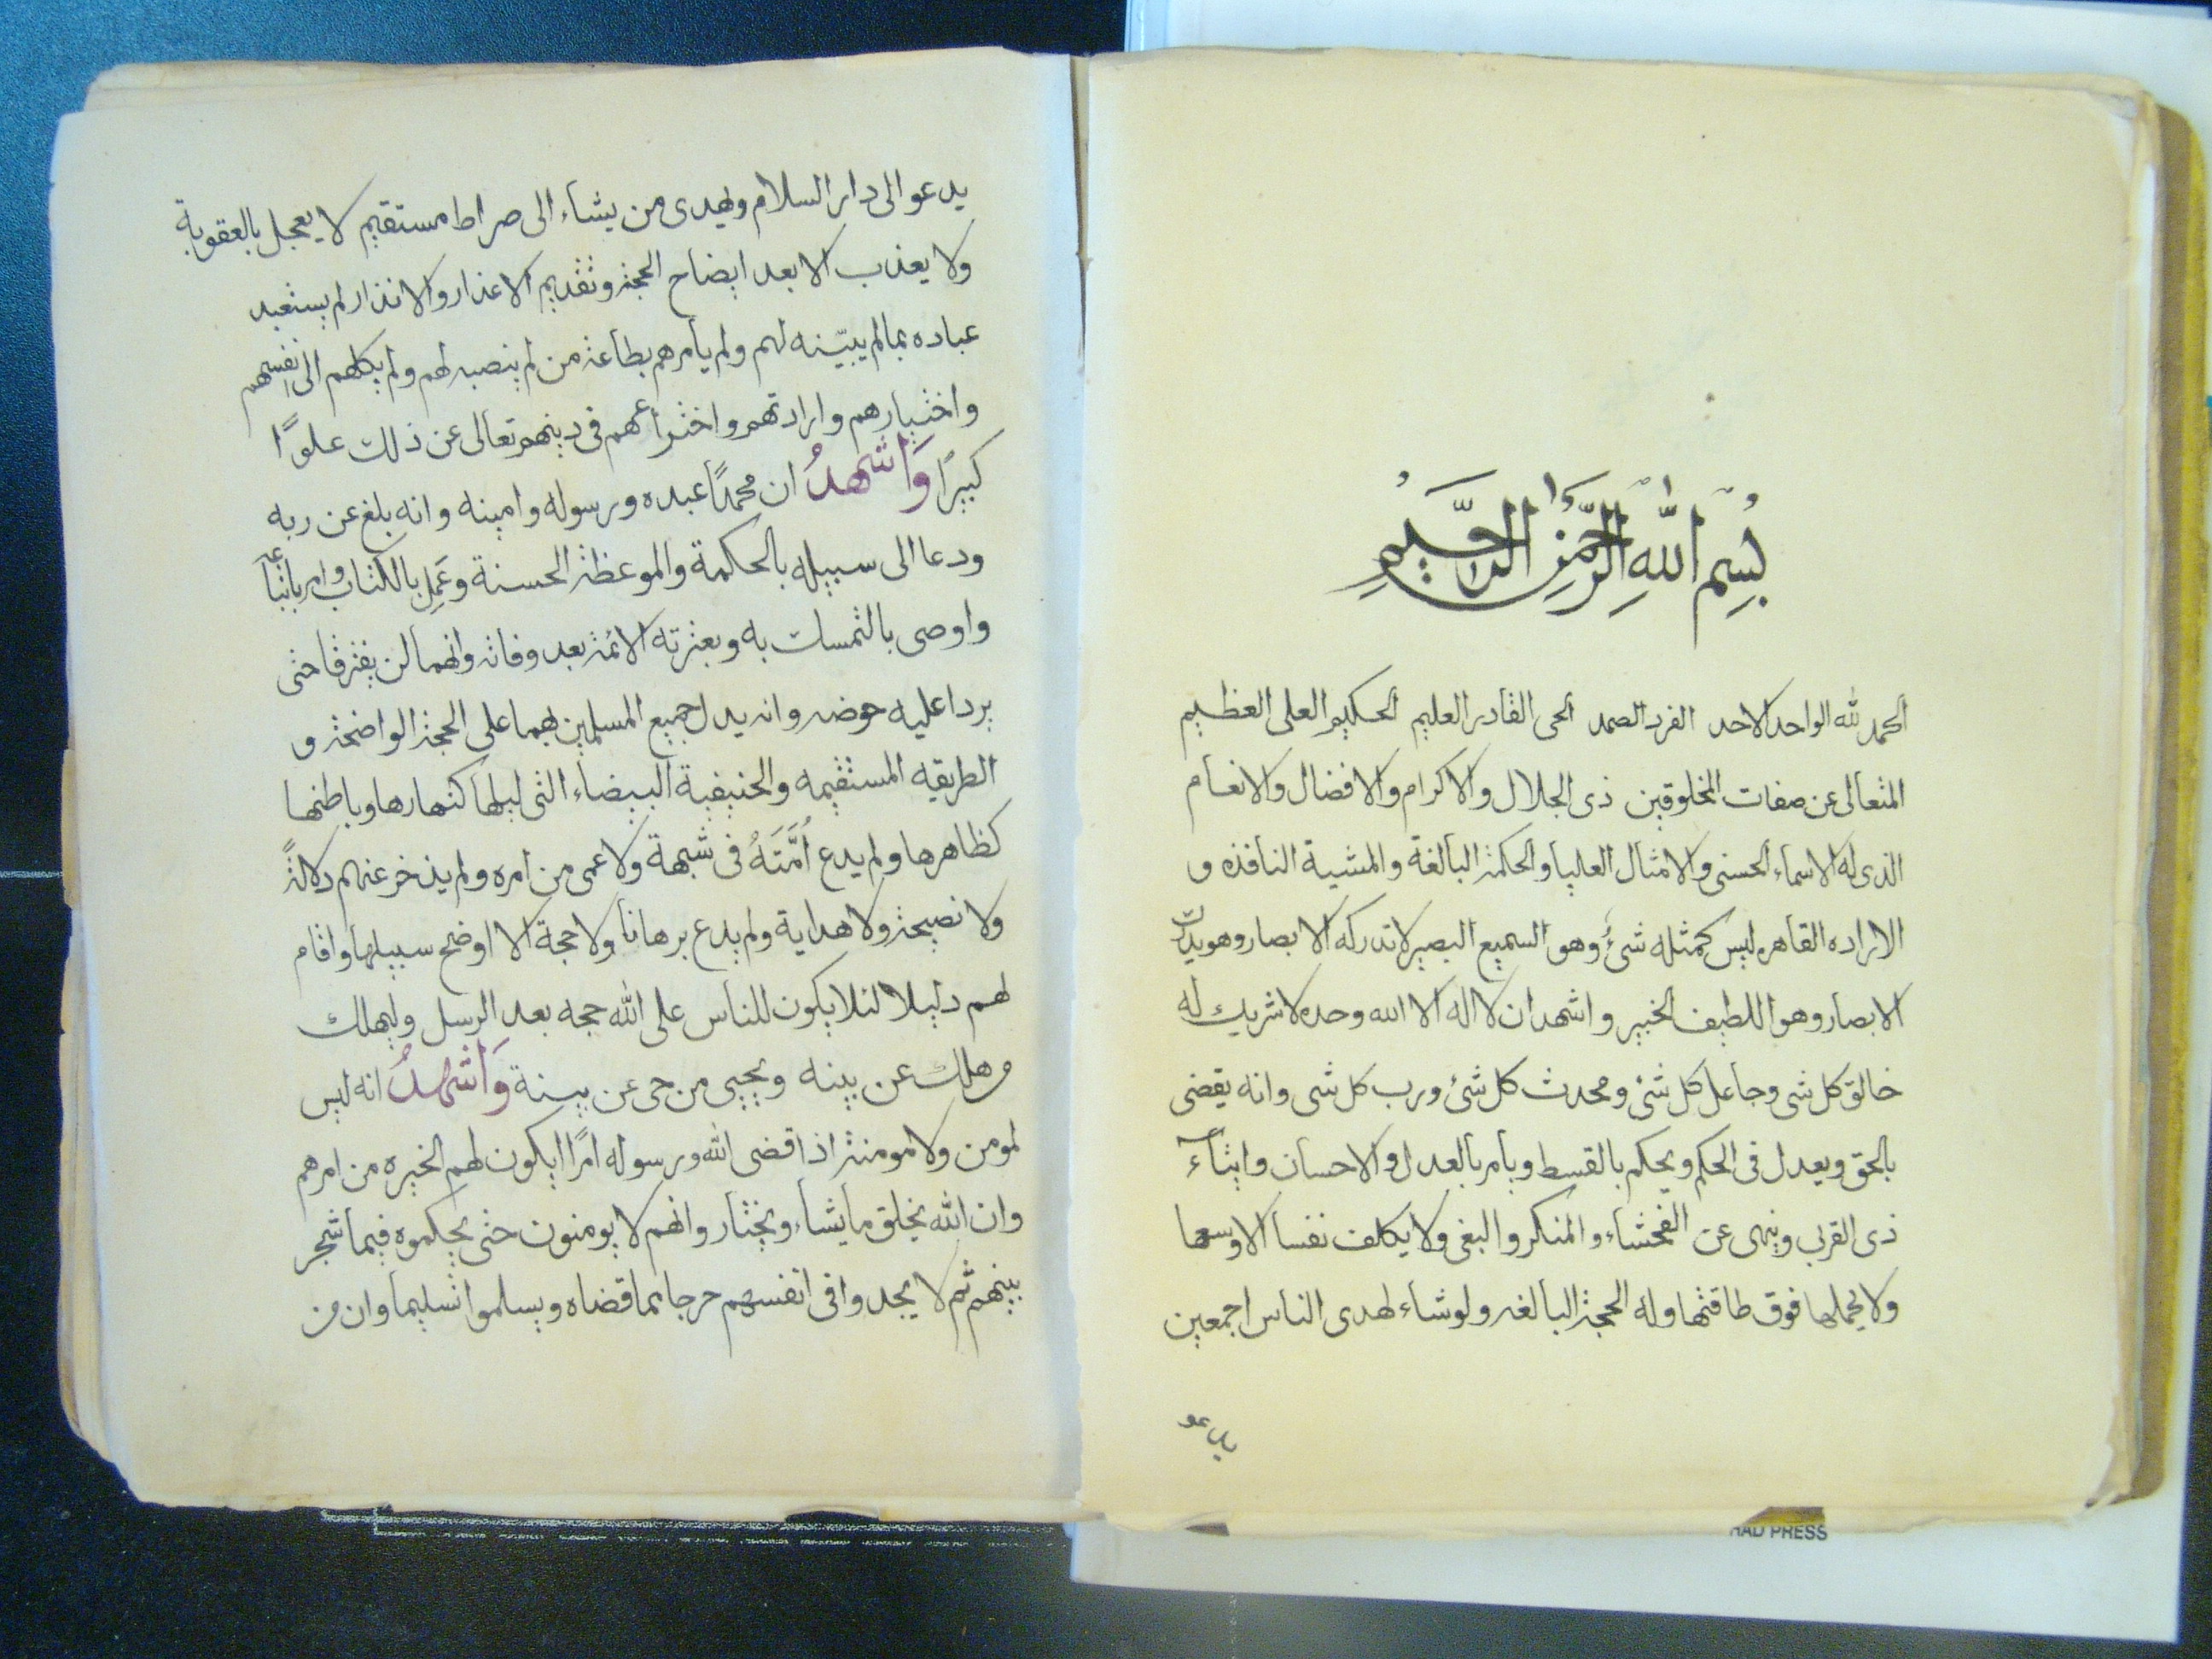 بِسْمِ اللّٰهِ الرَّحْمٰنِ الرَّحِيْمِ
الحمد لله الواحد الاحد الفرد الصمد الحى القادر العليم الحكيم العلى العظيم
المتعالى عن صفات المخلوقين ذى الجلال والاكرام والافضال والانعام
الذى له الاسماء الحسنى والامثال العليا والحكمة البالغة والمشية النافذه و
الاراده القاهره ليس كمثله شئ وهو السميع البصير لا تدركه الابصار وهو يدرك
الابصار وهو اللطيف الخبير واشهد ان لا اله الا الله وحده لا شريك له
خالق كل شى وجاعل كل شئ ومحدث كل شئ ورب كل شى وانه يقضى
بالحق ويعدل فى الحكم ويحكم بالقسط ويأمر بالعدل والاحسان وايتاء
ذى القربى وينهى عن الفحشاء والمنكر والبغى ولا يكلف نفسا الا وسعها
ولا يحملها فوق طاقتها وله الحجة البالغه ولو شاء لهدى الناس اجمعين
يدعو
يدعو الى دار السلام ويهدى من يشاء الى صراط مستقيم لا يعجل بالعقوبة
ولا يعذب الا بعد ايضاح الحجة وتقديم الاعذار والانذار لم يستعبد
عباده بما لم يبيّنه لهم ولم يأمرهم بطاعة من لم ينصبه لهم ولم يكلهم الى انفسهم
واختيارهم وارادتهم واختراعهم فى دينهم تعالى عن ذلك علوًا
كبيرًا وَاَشهدُ ان محمدًا عبده ورسوله وامينه وانه بلغ عن ربه
ودعا الى سبيله بالحكمة والموعظة الحسنة وعَمِل بالكتاب وامر باتباعه
واوصى بالتمسك به وبعترته الائمة بعد وفاته وانهما لن يفترقا حتى
يردا عليه حوضه وانه يدل جميع المسلمين بهما على الحجة الواضحة و
الطريقه المستقيمه والحنيفية البيضاء التى ليلها كنهارها وباطنها
كظاهرها ولم يدع اُمَّتَهُ فى شبهة ولا عمى من امره ولم يذخر عنهم دلالةً
ولا نصيحة ولا هداية ولم يدع برهانا ولا حجة الا اوضح سبيلها واقام
لهم دليلا لئلا يكون للناس على الله حجه بعد الرسل وليهلك
من هلك عن بينه ويحيى من حى عن بينة وَاَشهدُ انه ليس
لمومن ولا مومنة اذا قضى الله ورسوله امرًا ايكون لهم الخيره من امرهم
وان الله يخلق ما يشاء ويختار وانهم لا يومنون حتى يحكموه فيما شجر
بينهم ثم لا يجدوا فى انفسهم حرجا مما قضاه ويسلموا تسليما وان من
HAD PRESS